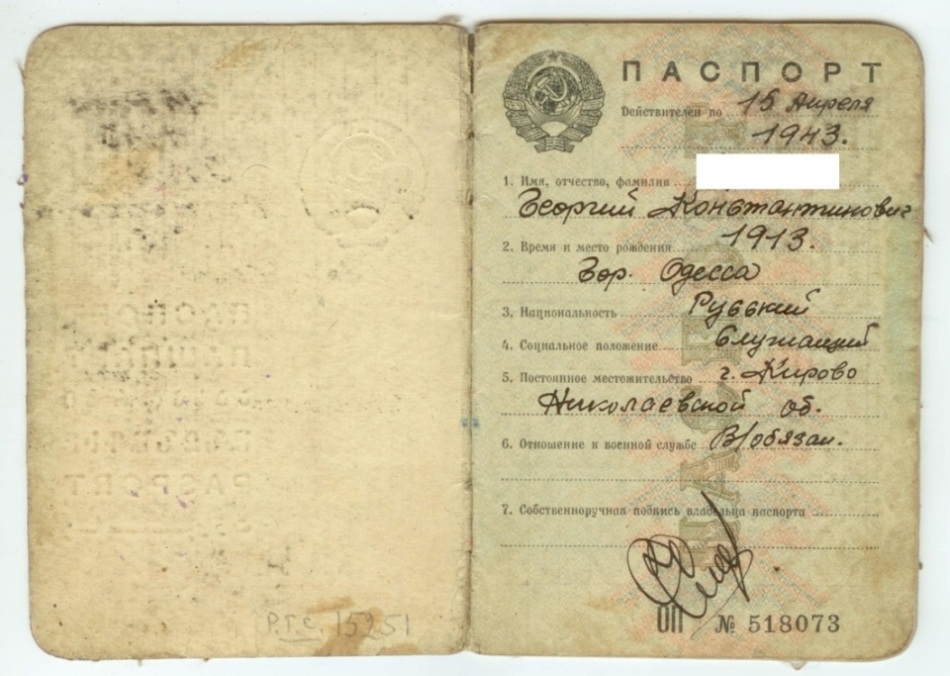 ПАСПОРТ
Действителен по 15 Апреля
1943.
1. Имя, отчество, фамилия
Георгий Константинович
2. Время и место рождения 1913.
Гор. Одесса
3. Национальность Русский
4. Социальное положение Служащий
5. Постоянное местожительство г. Кирово
Николаевской об.
6. Отношение к военной службе В/обязан.
7. Собственноручная подпись владельца паспорта
ОП № 518073
Р.Г.С. 15251
PASPORT